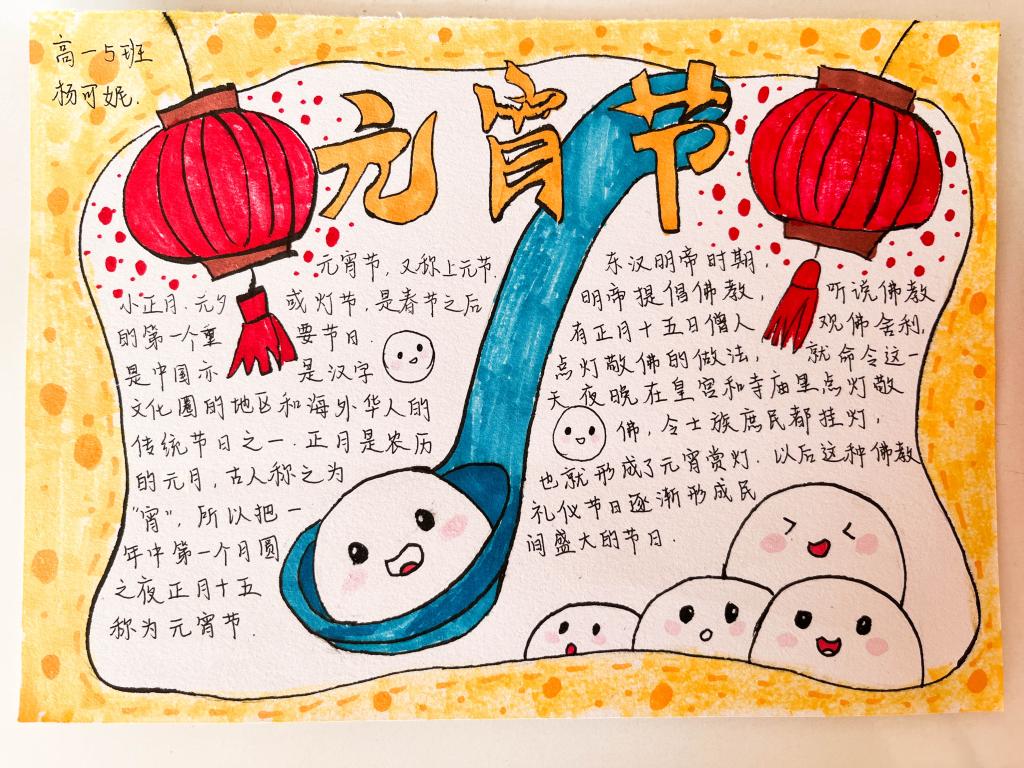 高一5班
杨可妮.
元宵节
元宵节,又称上元节.
小正月.元夕 或灯节,是春节之后
的第一个重 要节日.
是中国亦 是汉字
文化圈的地区和海外华人的
传统节日之一.正月是农历
的元月,古人称之为
"宵",所以把一
年中第一个月圆
之夜正月十五
称为元宵节.
东汉明帝时期,
明帝提倡佛教, 听说佛教
有正月十五日僧人 观佛舍利,
点灯敬佛的做法, 就命令这一
天夜晚在皇宫和寺庙里点灯敬
佛,令士族庶民都挂灯,
也就形成了元宵赏灯.以后这种佛教
礼仪节日逐渐形成民
间盛大的节日.